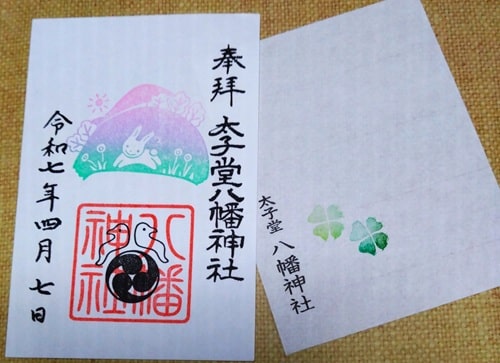 奉拝
太子堂八幡神社
八幡
神社
令和七年四月七日
太子堂
八幡神社